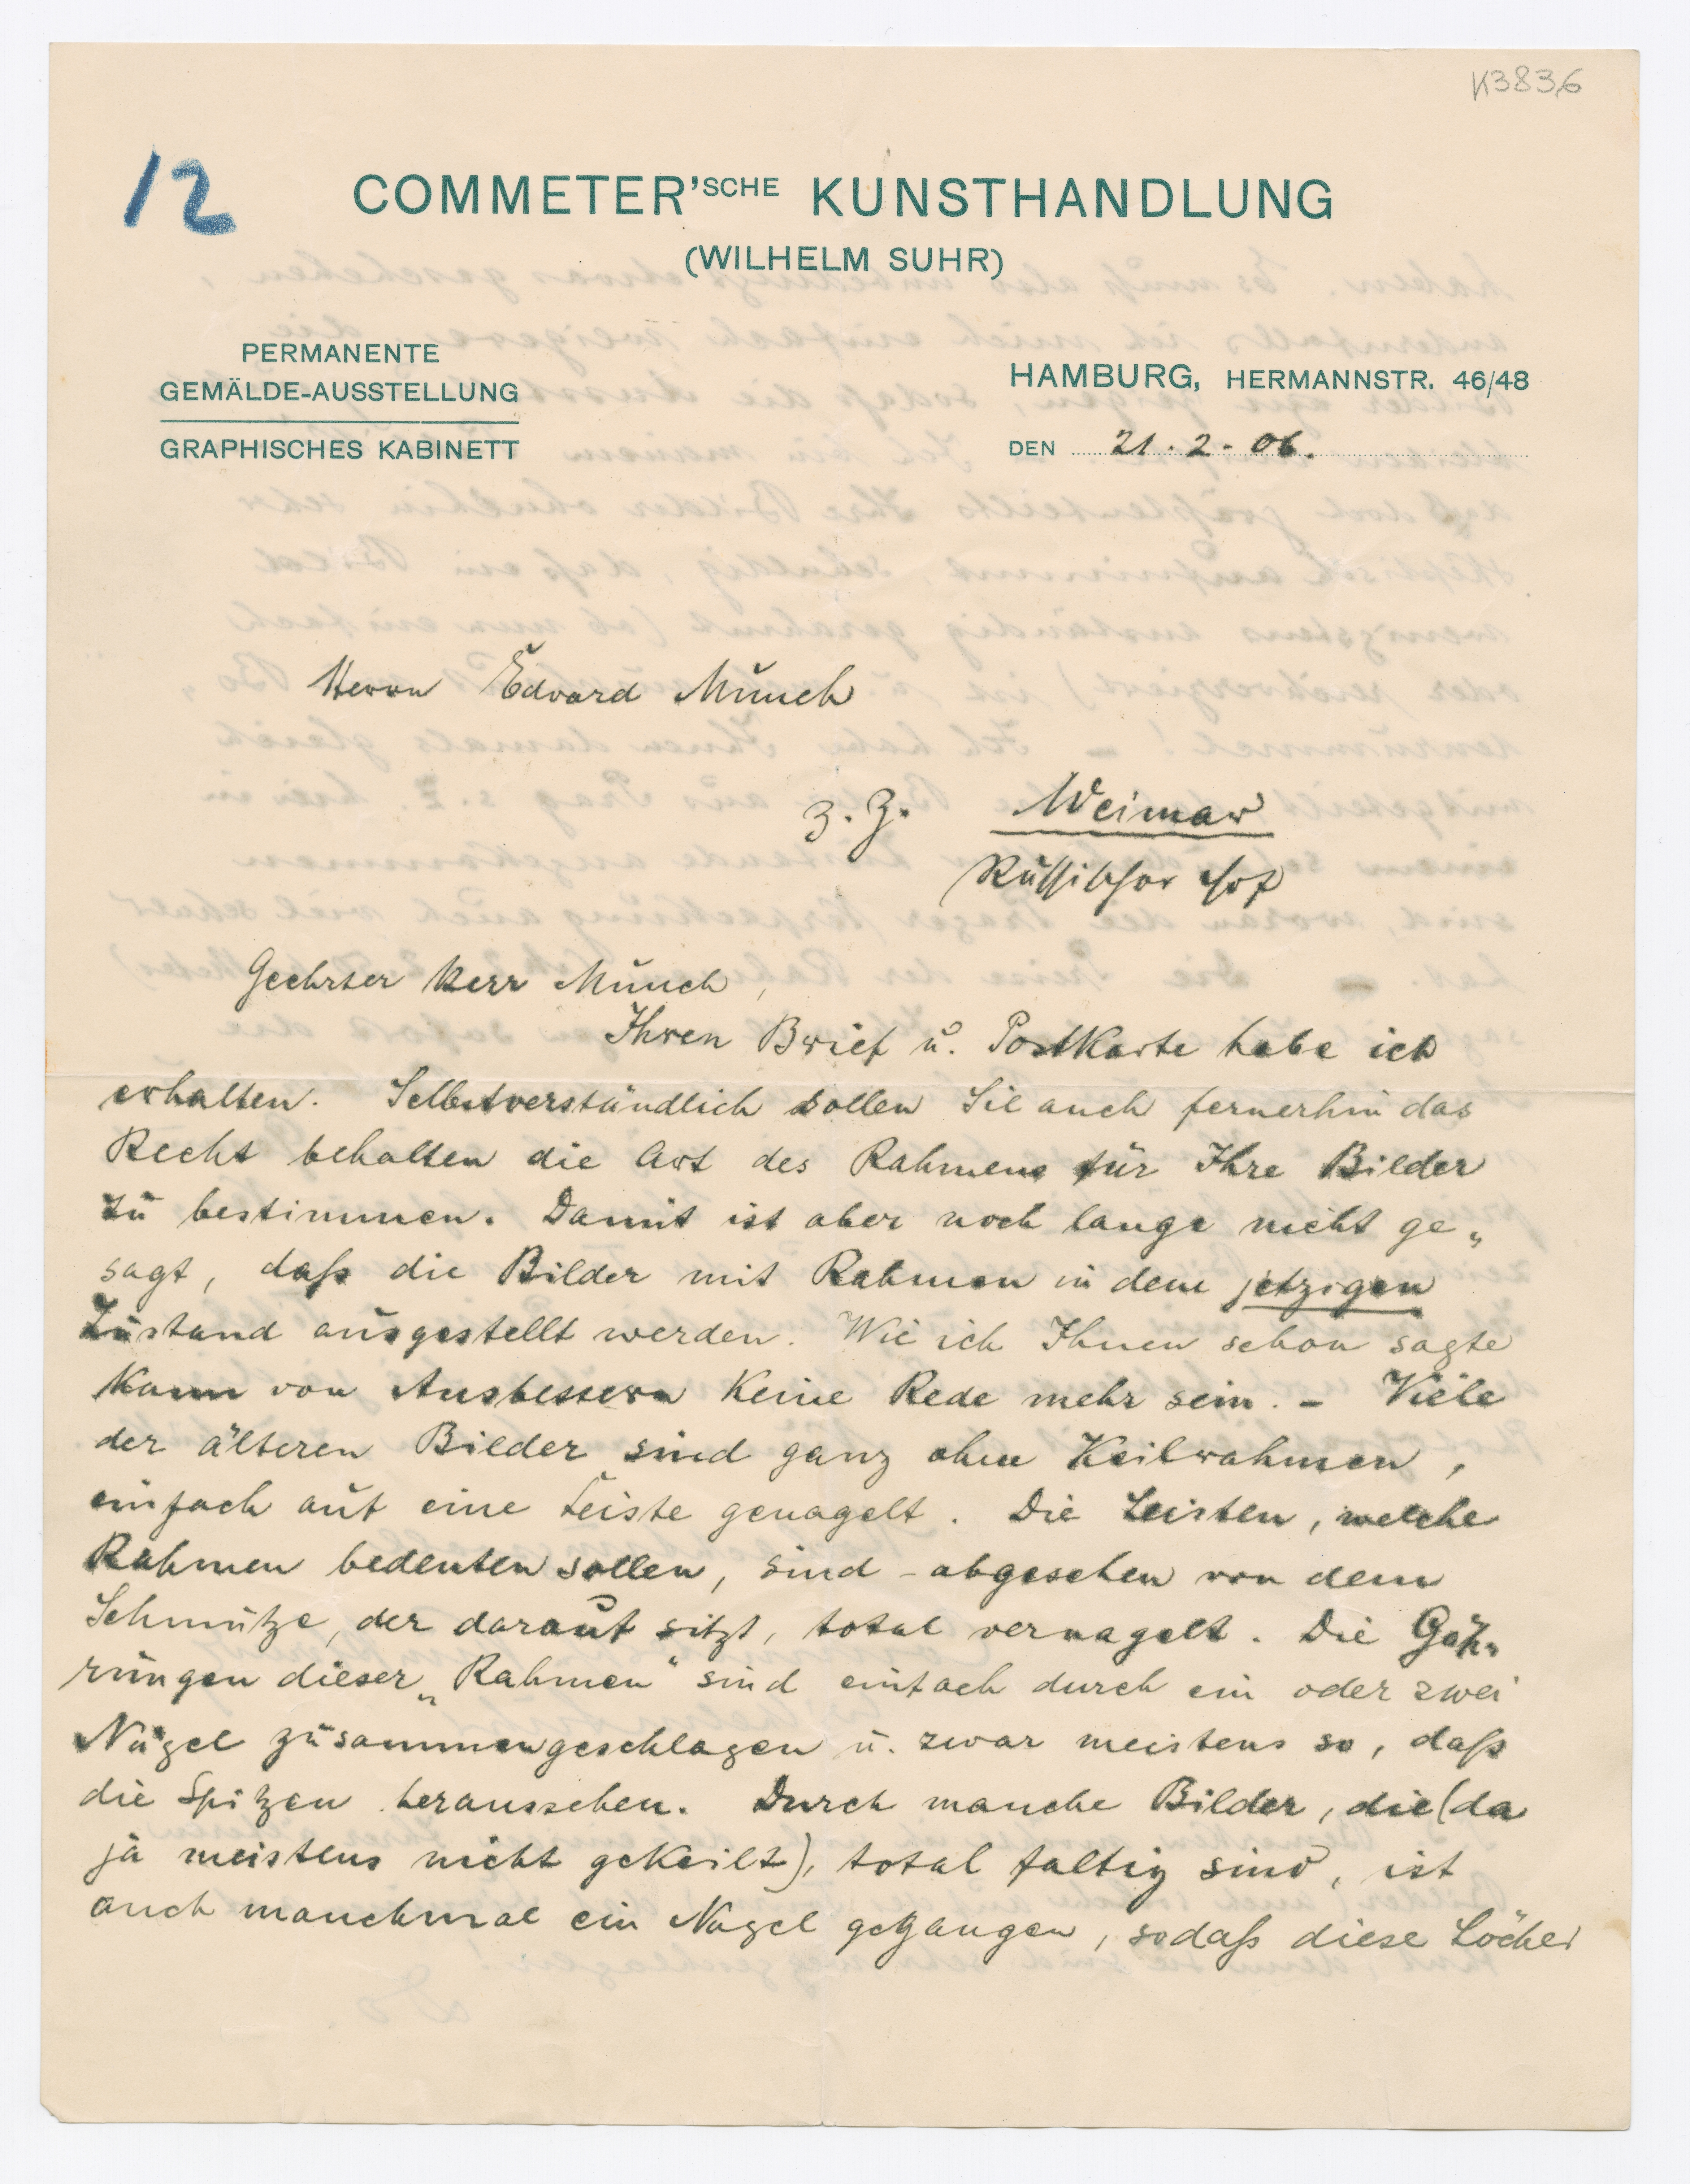 K3836
12
COMMETER'SCHE KUNSTHANDLUNG
(WILHELM SUHR)
PERMANENTE
GEMÄLDE-AUSSTELLUNG
GRAPHISCHES KABINETT
HAMBURG, HERMANNSTR. 46/48
DEN 21.2-06.
Herrn Edvard Munch
z. Z. Weimar
Russischer Hof
Geehrter Herr Munch,
Ihren Brief u. Postkarte habe ich
erhalten. Selbstverständlich sollen Sie auch fernerhin das
Recht behalten die Art des Rahmens für Ihre Bilder
zu bestimmen. Damit ist aber noch lange nicht ge„
sagt, daß die Bilder mit Rahmen in dem jetzigen
Zustand ausgestellt werden. Wie ich Ihnen schon sagte
kann von Ausbessern keine Rede mehr sein. – Viele
der älteren Bilder sind ganz ohne Keilrahmen,
einfach auf eine Leiste genagelt. Die Leisten, welche
Rahmen bedeuten sollen, sind – abgesehen von dem
Schmutze, der darauf sitzt, total vernagelt. Die Gäh„
rungen dieser „Rahmen“ sind einfach durch ein oder zwei
Nägel zusammengeschlagen u. zwar meistens so, daß
die Spitzen heraussehen. Durch manche Bilder, die (da
ja meistens nicht gekeilt), total faltig sind, ist
auch manchmal ein Nagel gegangen, sodaß diese Löcher